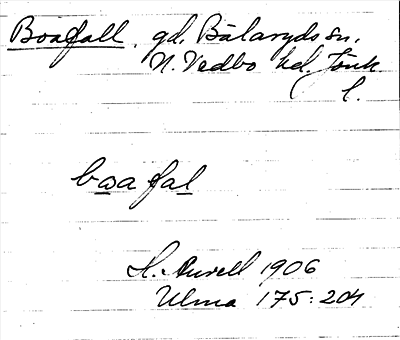 Boafall, gd. Bälaryds sn,
N. Vedbo hd. Jönk.
l.
bɷa fal
H. Aurell 1906
Ulma 175:204